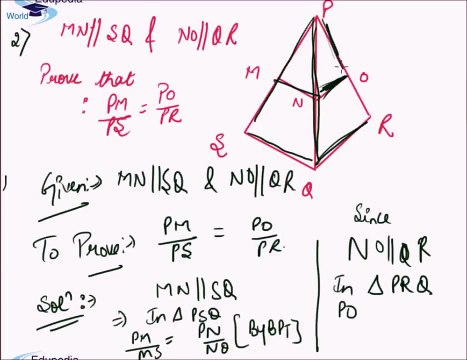 Edupedia
World
2) MN∥SQ & NO∥QR
Prove that
: PM/PS = PO/PR
P
M
N
O
S
R
Q
) Given:→ MN∥SQ & NO∥QR
To Prove:→ PM/PS = PO/PR.
Solⁿ:→ MN∥SQ
⇒ In Δ PSQ
PM/MS = PN/NQ [By BPT]
Since
NO∥QR
In Δ PRQ
PO
Edupedia